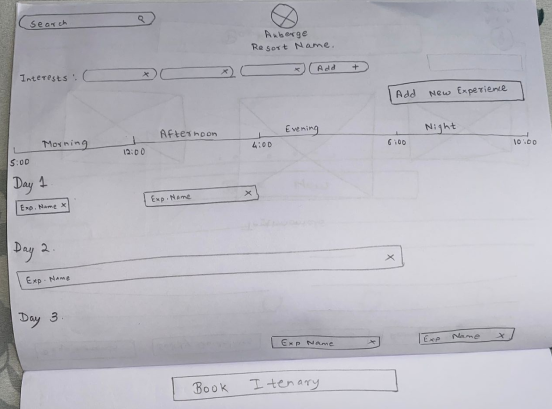 Search
Auberge
Resort Name.
Interests: x x x Add +
Add New Experience
Morning Afternoon Evening Night
5:00 12:00 4:00 6:00 10:00
Day 1
Exp. Name x Exp. Name x
Day 2
Exp. Name x
Day 3
Exp Name x Exp Name x
Book Itenary